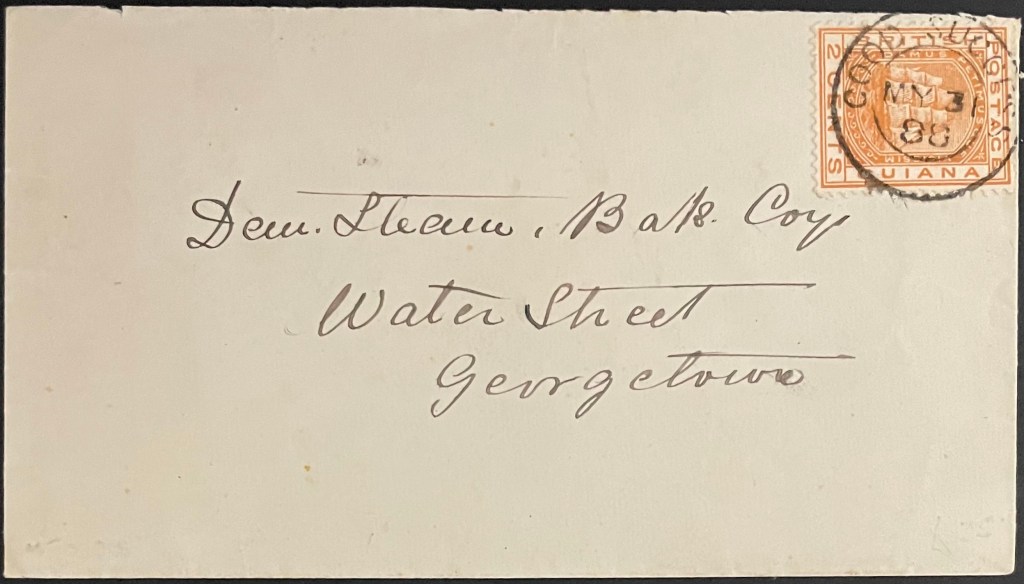 POSTAGE
2 CENTS
UIANA
MY 31
88
Dem. Steam. Bak. Coy
Water Street
Georgetown